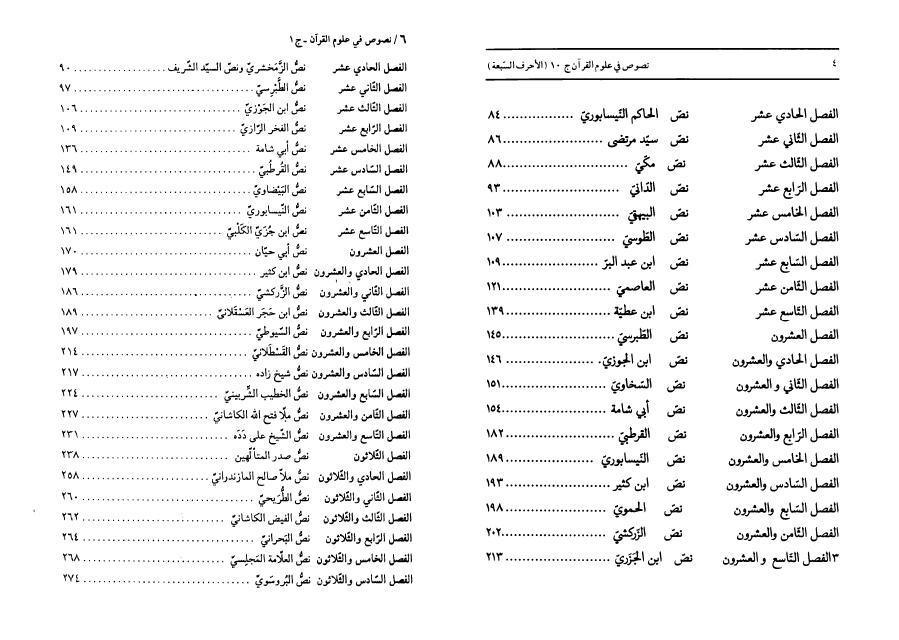 ٤ نصوص في علوم القرآن ج ١٠ (الأحرف السّبعة)
الفصل الحادي عشر نصّ الحاكم النّيسابوريّ ..................... ٨٤
الفصل الثّاني عشر نصّ سيّد مرتضى ..................... ٨٦
الفصل الثّالث عشر نصّ مكّيّ ..................... ٨٨
الفصل الرّابع عشر نصّ الدّانيّ ..................... ٩٣
الفصل الخامس عشر نصّ البيهقيّ ..................... ١٠٣
الفصل السّادس عشر نصّ الطّوسيّ ..................... ١٠٧
الفصل السّابع عشر نصّ ابن عبد البرّ ..................... ١٠٩
الفصل الثّامن عشر نصّ العاصميّ ..................... ١٢١
الفصل التّاسع عشر نصّ ابن عطيّة ..................... ١٣٩
الفصل العشرون نصّ الطّبرسيّ ..................... ١٤٥
الفصل الحادي والعشرون نصّ ابن الجوزيّ ..................... ١٤٦
الفصل الثّاني و العشرون نصّ السّخاويّ ..................... ١٥١
الفصل الثّالث والعشرون نصّ أبي شامة ..................... ١٥٤
الفصل الرّابع والعشرون نصّ القرطبيّ ..................... ١٨٢
الفصل الخامس والعشرون نصّ النّيسابوريّ ..................... ١٨٩
الفصل السّادس والعشرون نصّ ابن كثير ..................... ١٩٣
الفصل السّابع والعشرون نصّ الحمويّ ..................... ١٩٨
الفصل الثّامن والعشرون نصّ الزّركشيّ ..................... ٢٠٢
٣الفصل التّاسع و العشرون نصّ ابن الجَزَريّ ..................... ٢١٣
٦ / نصوص في علوم القرآن - ج ١
الفصل الحادي عشر نصُّ الزَّمَخشريّ ونصّ السيّد الشّريف ..................... ٩٠
الفصل الثّاني عشر نصُّ الطَّبْرِسيّ ..................... ٩٧
الفصل الثّالث عشر نصُّ ابن الجَوْزيّ ..................... ١٠٦
الفصل الرّابع عشر نصُّ الفخر الرّازيّ ..................... ١٠٩
الفصل الخامس عشر نصُّ أبي شامة ..................... ١٣٦
الفصل السّادس عشر نصُّ القُرطُبيّ ..................... ١٤٩
الفصل السّابع عشر نصُّ البَيْضاويّ ..................... ١٥٨
الفصل الثّامن عشر نصُّ النّيسابوريّ ..................... ١٦١
الفصل التّاسع عشر نصُّ ابن جُزَيّ الكَلْبيّ ..................... ١٦١
الفصل العشرون نصُّ أبي حيّان ..................... ١٧٠
الفصل الحادي والعشرون نصُّ ابن كثير ..................... ١٧٩
الفصل الثّاني والعشرون نصُّ الزَّركشيّ ..................... ١٨٦
الفصل الثّالث والعشرون نصُّ ابن حَجَر العَسْقَلانيّ ..................... ١٨٩
الفصل الرّابع والعشرون نصُّ السُّيوطيّ ..................... ١٩٧
الفصل الخامس والعشرون نصُّ القَسْطَلانيّ ..................... ٢١٤
الفصل السّادس والعشرون نصُّ شيخ زاده ..................... ٢١٧
الفصل السّابع والعشرون نصُّ الخطيب الشّربينيّ ..................... ٢٢٤
الفصل الثّامن والعشرون نصُّ ملّا فتح الله الكاشانيّ ..................... ٢٢٧
الفصل التّاسع والعشرون نصُّ الشّيخ على دَدَه ..................... ٢٣١
الفصل الثّلاثون نصُّ صدر المتألّهين ..................... ٢٣٨
الفصل الحادي والثّلاثون نصُّ ملاّ صالح المازندرانيّ ..................... ٢٥٨
الفصل الثّاني والثّلاثون نصُّ الطُّريحيّ ..................... ٢٦٠
الفصل الثّالث والثّلاثون نصُّ الفيض الكاشانيّ ..................... ٢٦٢
الفصل الرّابع والثّلاثون نصُّ البَحرانيّ ..................... ٢٦٤
الفصل الخامس والثّلاثون نصُّ العلّامة المَجلِسيّ ..................... ٢٦٨
الفصل السّادس والثّلاثون نصُّ البُروسَويّ ..................... ٢٧٤